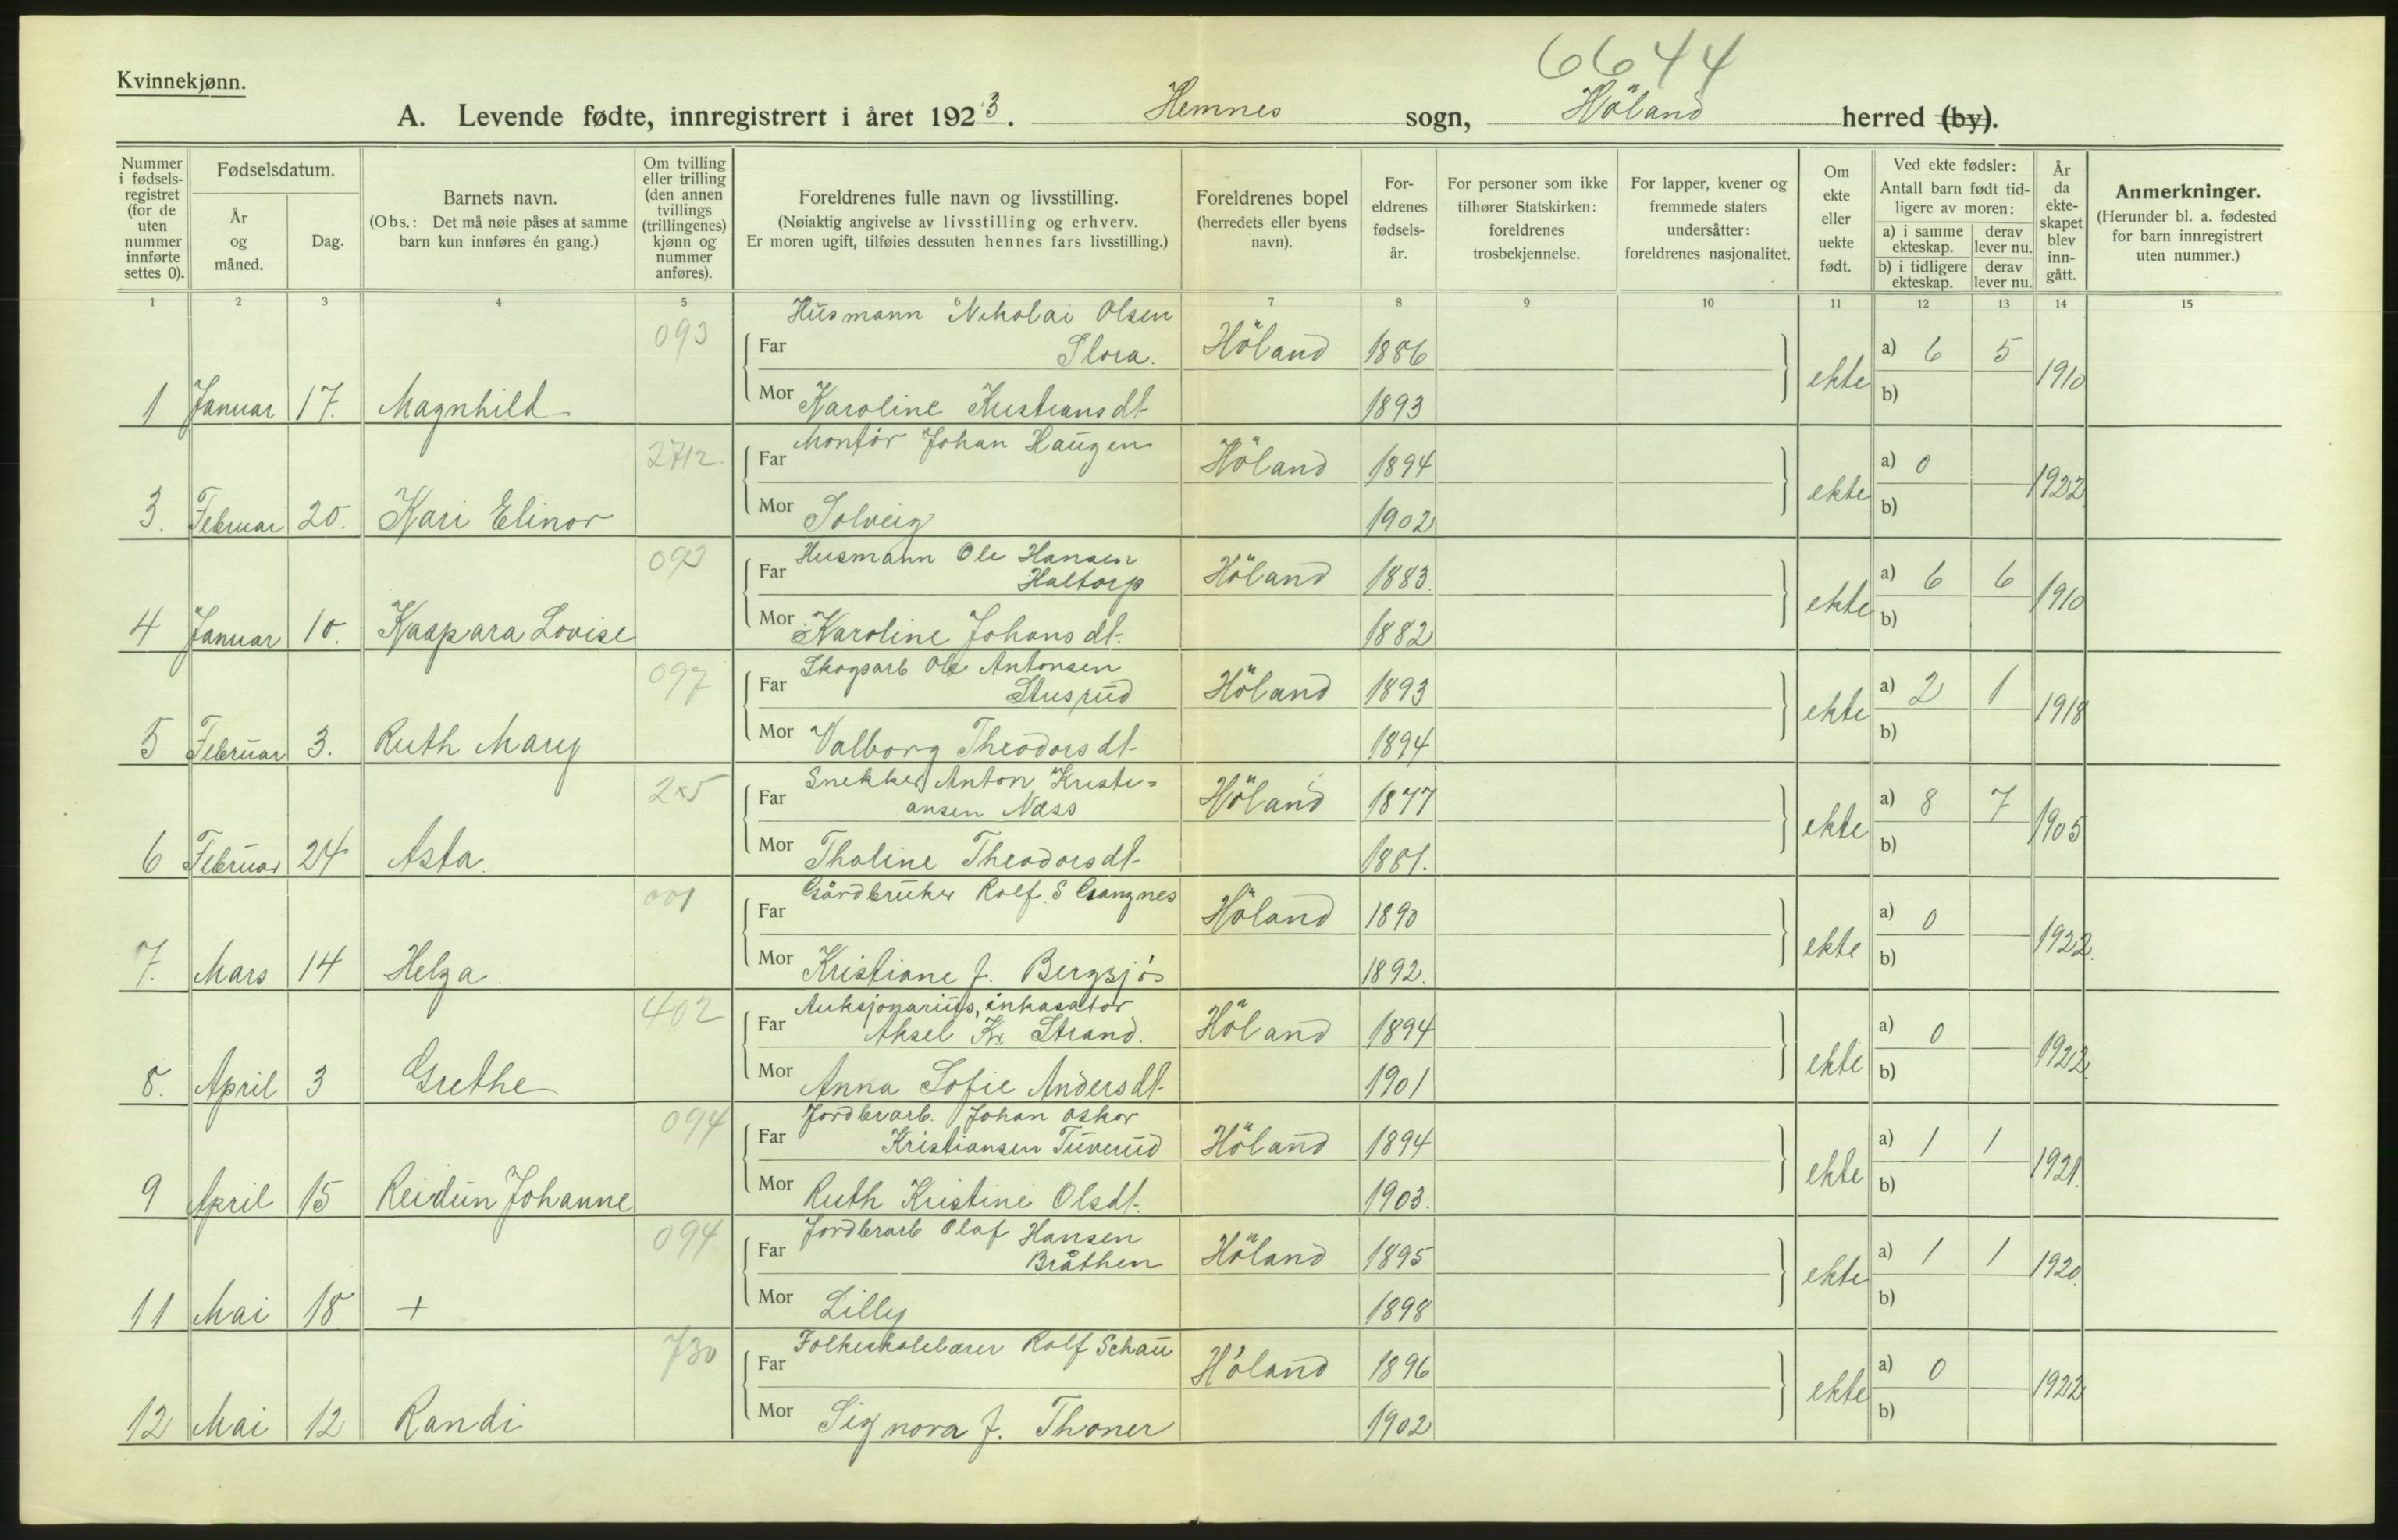 6644
Kvinnekjønn.
A. Levende fødte, innregistrert i året 1923. Hemnes sogn, Höland herred (by).
Nummer i fødsels-registret (for de uten nummer innførte settes 0).
Fødselsdatum.
År og måned.
Dag.
Barnets navn.
(Obs.: Det må nøie påses at samme barn kun innføres én gang.)
Om tvilling eller trilling (den annen tvillings (trillingenes) kjønn og nummer anføres).
Foreldrenes fulle navn og livsstilling.
(Nøiaktig angivelse av livsstilling og erhverv. Er moren ugift, tilføies dessuten hennes fars livsstilling.)
Foreldrenes bopel (herredets eller byens navn).
For-eldrenes fødsels-år.
For personer som ikke tilhører Statskirken: foreldrenes trosbekjennelse.
For lapper, kvener og fremmede staters undersåtter: foreldrenes nasjonalitet.
Om ekte eller uekte født.
Ved ekte fødsler: Antall barn født tid-ligere av moren:
a) i samme ekteskap. derav lever nu.
b) i tidligere ekteskap. derav lever nu.
År da ekte-skapet blev inn-gått.
Anmerkninger.
(Herunder bl. a. fødested for barn innregistrert uten nummer.)
1 2 3 4 5 7 8 9 10 11 12 13 14 15
093 Husmann Nikolai Olsen
Far Slora. Höland 1886 a) 6 5
1 Januar 17. Magnhild Mor Karoline Kristiansdt. 1893 ekte b) 1910
2712. Far Montør Johan Haugen Höland 1894 a) 0
3. Februar 20. Kari Elinor Mor Solveig 1902 ekte b) 1922
093 Husmann Ole Hansen
Far Haltorp Höland 1883. a) 6 6
4 Januar 10. Kaspara Lovise Mor Karoline Johansdt. 1882 ekte b) 1910
097 Skogsarb Ole Antonsen
Far Stusrud Höland 1893 a) 2 1
5 Februar 3. Ruth Mary Mor Valborg Theodorsdt. 1894 ekte b) 1918
2x5 Snekker Anton Kristi=
Far ansen Næss Höland 1877 a) 8 7
6 Februar 24 Asta. Mor Thaline Theodorsdt. 1881. ekte b) 1905
001 Far Gårdbruker Rolf. S Gangnes Höland 1890 a) 0
7. Mars 14 Helga. Mor Kristiane J. Bergsjø 1892. ekte b) 1922.
402 Auksjonarius, inkasator
Far Aksel Kr. Strand. Höland 1894 a) 0
8. April 3 Grethe Mor Anna Sofie Andersdt. 1901 ekte b) 1922.
094 Jordbrarb. Johan Oskar
Far Kristiansen Tuverud Höland 1894 a) 1 1
9 April 15 Reidun Johanne Mor Ruth Kristine Olsdt. 1903. ekte b) 1921.
094 Jordbrarb Olaf Hansen
Far Bråthen Höland 1895 a) 1 1
11 Mai 18 + Mor Lilly 1898 ekte b) 1920.
730 Far Folkeskolelærer Rolf Schau Höland 1896 a) 0
12 Mai 12 Randi Mor Signora J. Thoner 1902 ekte b) 1922